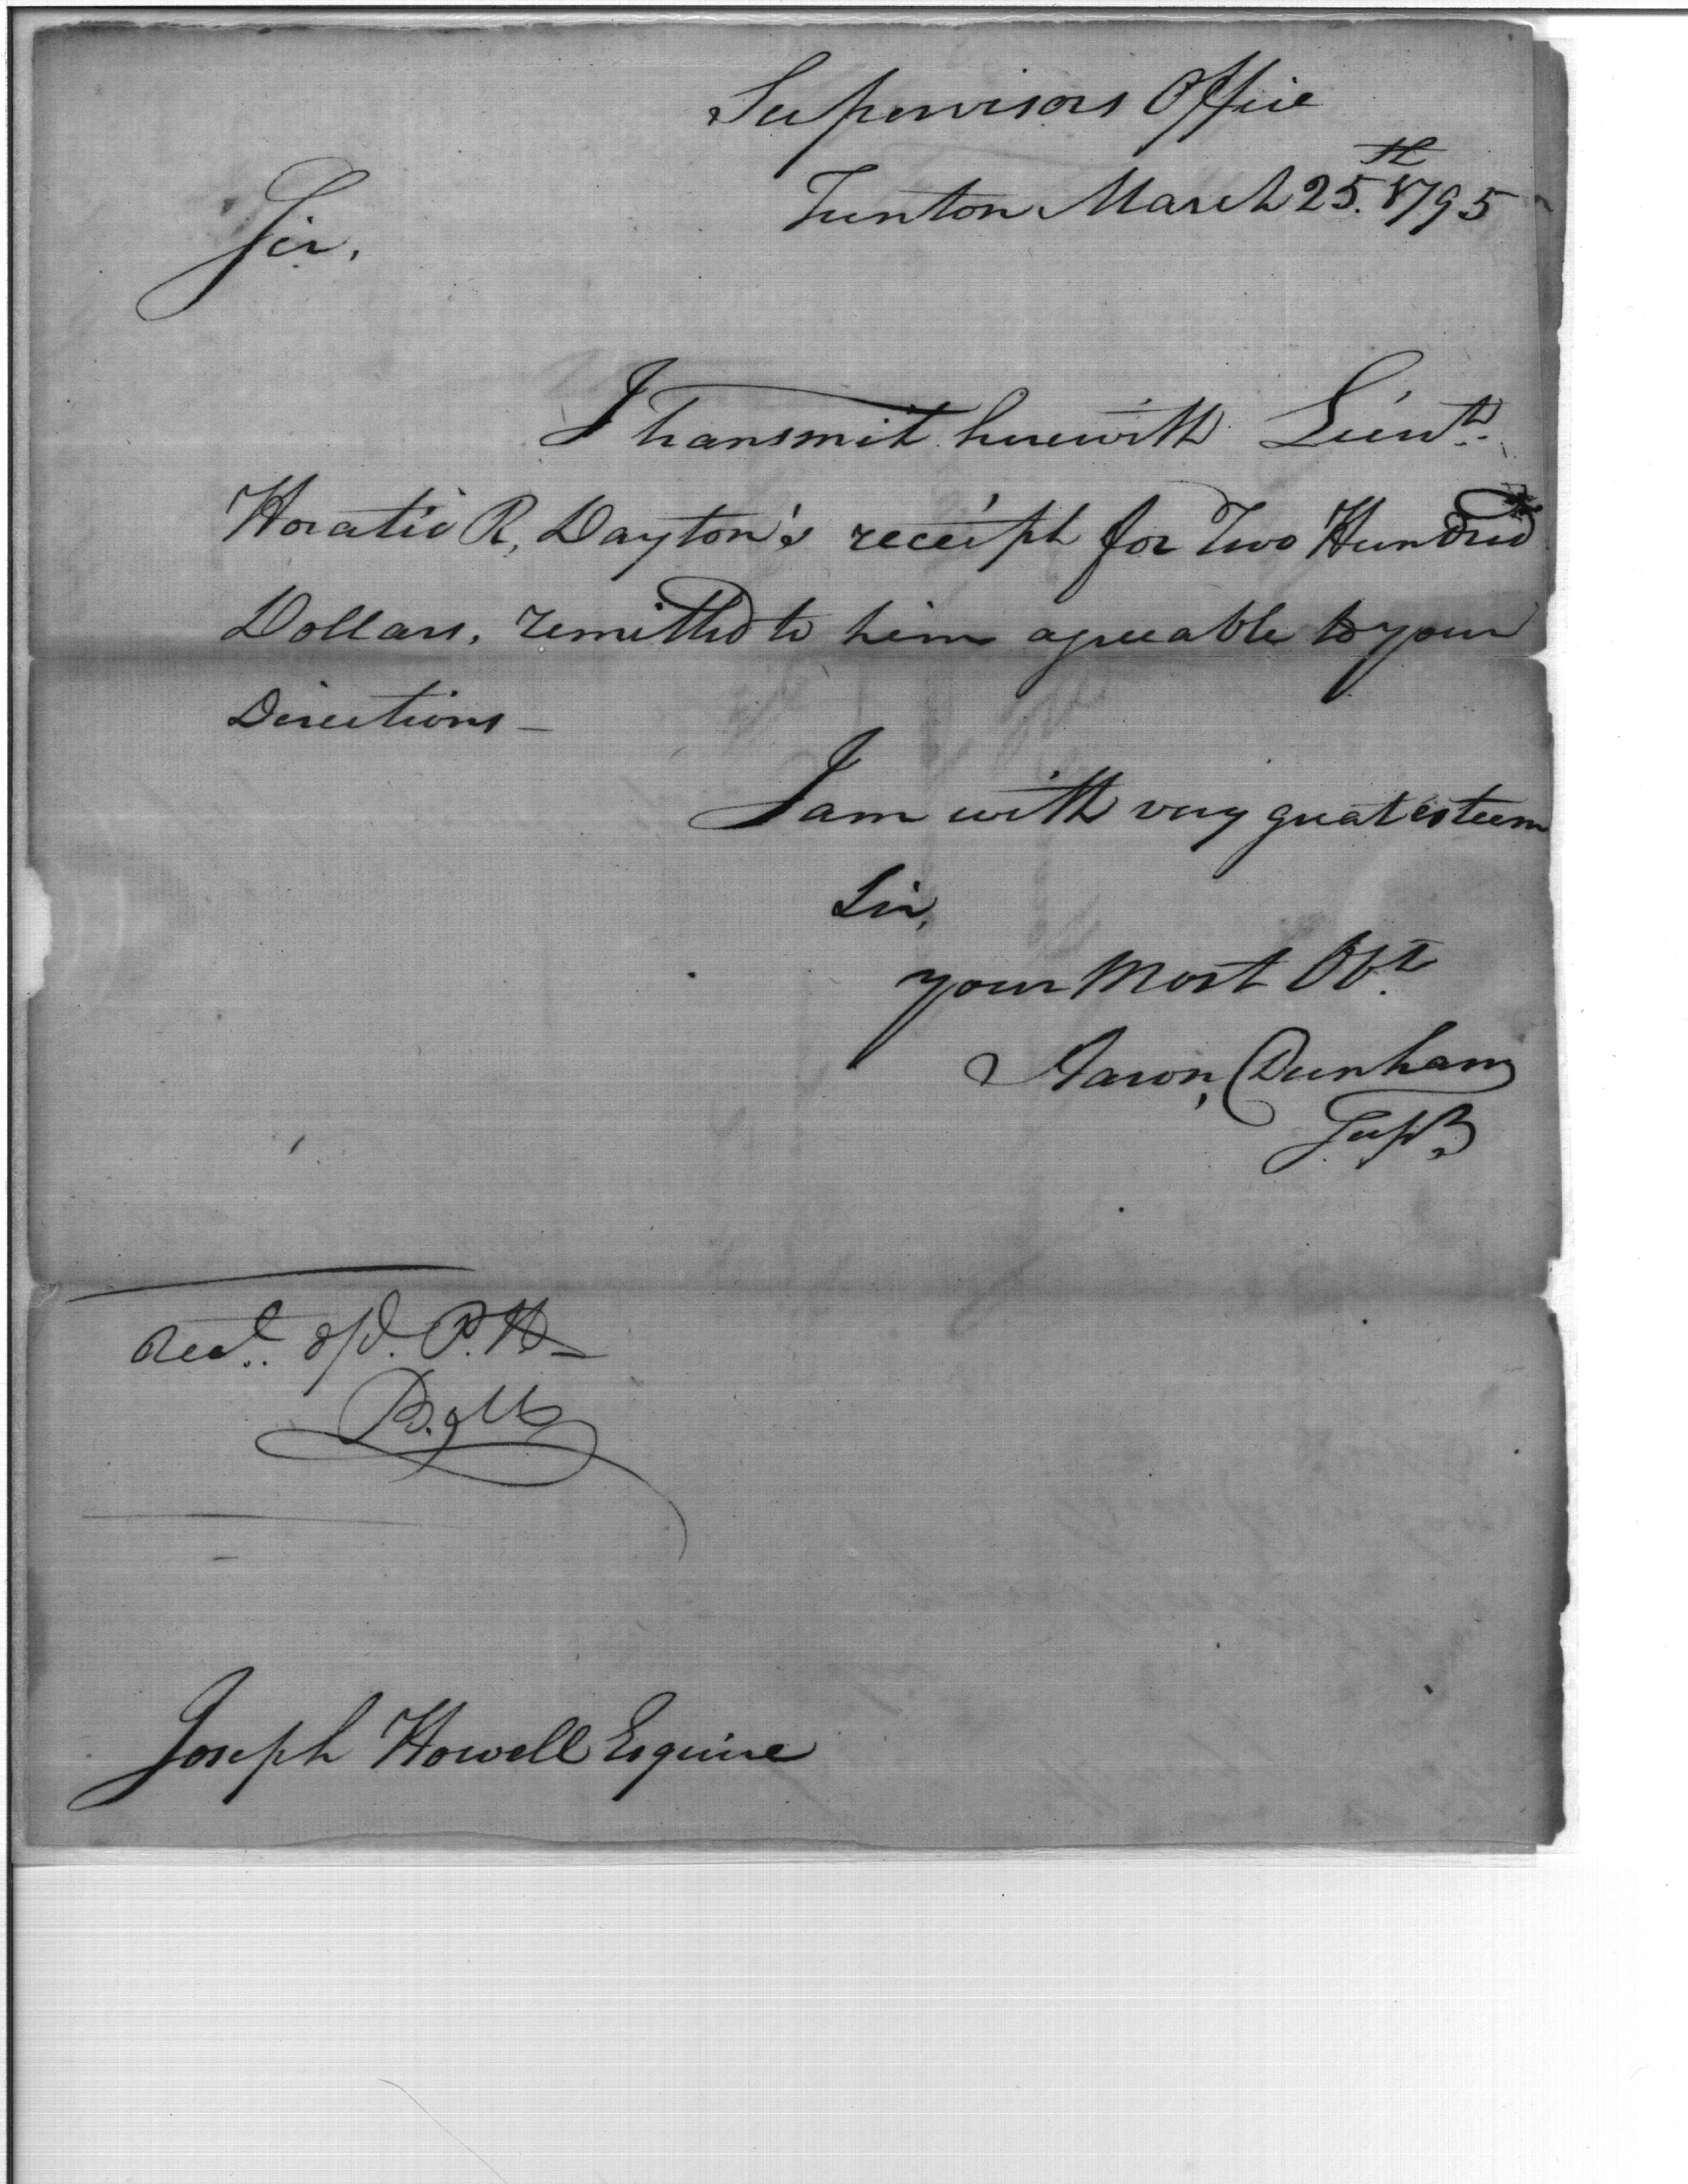 Supervisors Office
Trenton March 25.th 1795
Sir,
I transmit herewith Lieut.
Horatio R, Dayton's receipt for Two Hundred
Dollars, remitted to him agreeable to your
Directions —
I am with very great esteem
Sir,
your Most Obt.
Aaron, Dunham
Supr.
Recd.
Joseph Howell Esquire